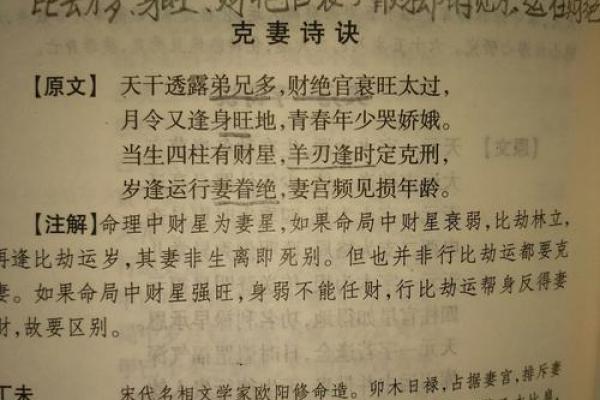 比劫多、身旺、财绝官衰
克妻诗诀
【原文】 天干透露弟兄多,财绝官衰旺太过,
月令又逢身旺地,青春年少哭娇娥。
当生四柱有财星,羊刃逢时定克刑,
岁逢运行妻眷绝,妻宫频见损年龄。
【注解】命理中财星为妻星,如果命局中财星衰弱,比劫林立,
再逢比劫运岁,其妻非生离即死别。但也并非行比劫运都要克
妻。如果命局中财星强旺,身弱不能任财,行比劫运帮身反得妻
财,故要区别。
丁未 宋代名相文学家欧阳修命造。卯木日禄,占据妻宫,排斥妻